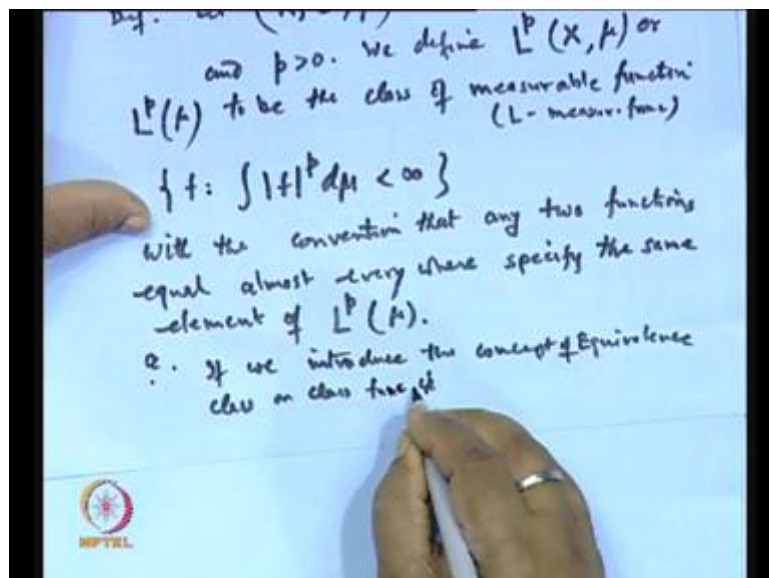 and p>0. We define L^p(X, μ) or
L^p(μ) to be the class of measurable function
(L-measur. func)
{f: ∫|f|^p dμ < ∞}
with the convention that any two functions
equal almost every where specify the same
element of L^p(μ).
If we introduce the concept of Equivalence
class on class func
NPTEL